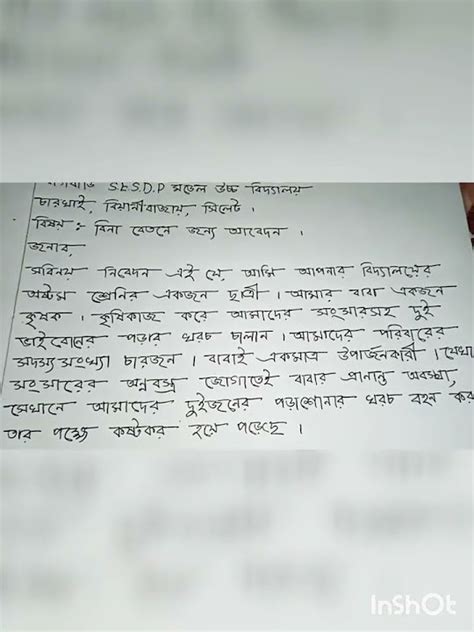 S.E.S.D.P মডেল উচ্চ বিদ্যালয়
চারখাই, বিয়ানীবাজার, সিলেট ।
বিষয় : বিনা বেতনে জন্য আবেদন ।
জনাব,
সবিনয় নিবেদন এই যে, আমি আপনার বিদ্যালয়ের
অষ্টম শ্রেনির একজন ছাত্রী । আমার বাবা একজন
কৃষক । কৃষিকাজ করে আমাদের সংসারসহ দুই
ভাইবোনের পড়ার খরচ চালান । আমাদের পরিবারের
সদস্য সংখ্যা চারজন । বাবাই একমাত্র উপার্জনকারী । যেখা
সংসারের অন্নবস্ত্র জোগাতেই বাবার প্রানান্ত অবস্থা,
সেখানে আমাদের দুইজনের পড়াশোনার খরচ বহন কর
তার পক্ষে কষ্টকর হয়ে পড়েছে ।
InShOt